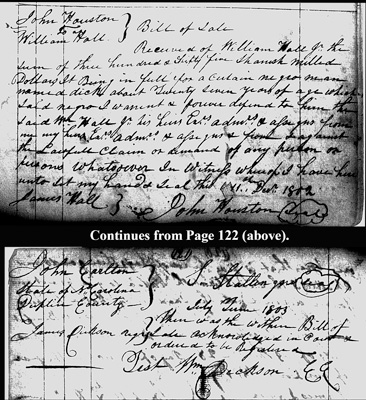 John Houston
to
William Hall } Bill of Sale
Received of William Hall Jr the
sum of three hundred & fifty five Spanish milled
Dollars It Being in full for a certain negro man
named dick about Twenty seven years of age which
said negro I warrant & forever defend to him the
said Wm Hall Jr his heirs Exrs admrs & assigns from
me my heirs Exrs admrs & assigns & from & against
the Lawfull Claim or demand of any person or
persons whatsoever In Witness whereof I have here
unto set my hand & Seal this 11th Decr 1802
James Hall } John Houston Seal
Continues from Page 122 (above).
John Carlton } S. Stallings Seal
State of No Carolina
Duplin County } July Term 1803
Then was the within Bill of
James Dickson
acknowledged in Court &
ordered to be Registered
Test Wm Dickson CC